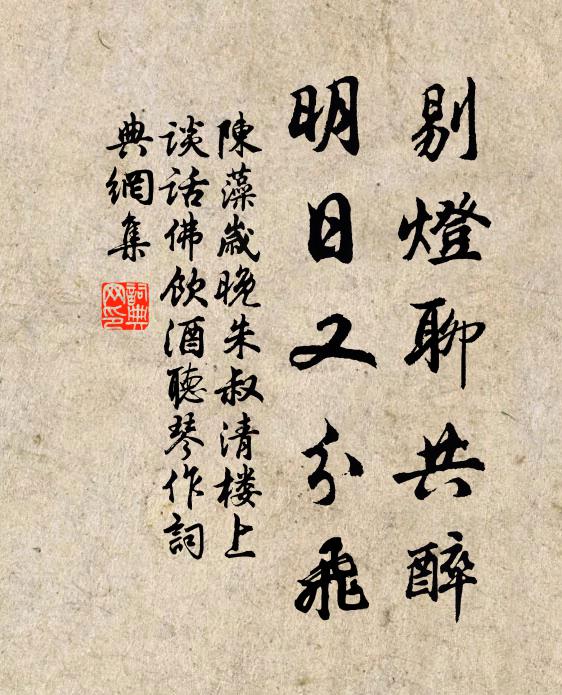 剔燈聊共醉
明日又分飛
陳藻歲晚朱叔清楼上
談話佛飲酒聽琴作詞
典網集
詞典网印